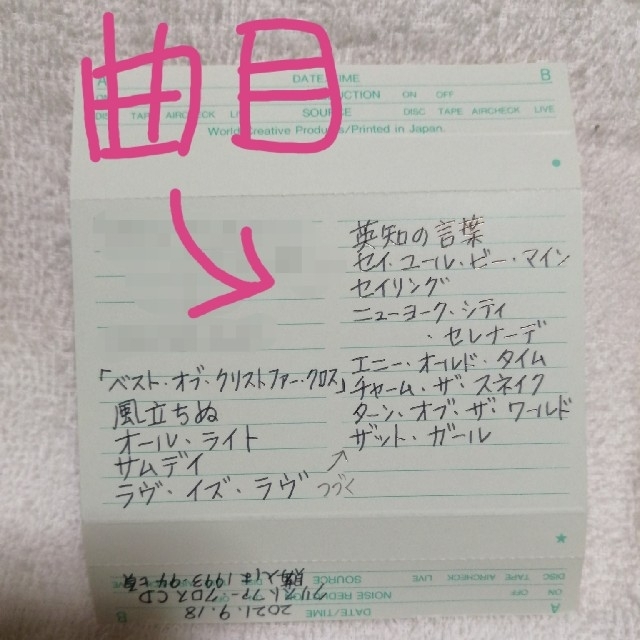 曲目
A DATE/TIME B
ON OFF
DISC TAPE AIRCHECK LIVE SOURCE DISC TAPE AIRCHECK LIVE
World Creative Products/Printed in Japan.
「ベスト・オブ・クリストファー・クロス」
風立ちぬ
オール・ライト
サムデイ
ラヴ・イズ・ラヴ
つづく
英知の言葉
セイ・ユール・ビー・マイン
セイリング
ニューヨーク・シティ
・セレナーデ
エニー・オールド・タイム
チャーム・ザ・スネイク
ターン・オブ・ザ・ワールド
ザット・ガール
A DATE/TIME B
2021.9.18
ON OFF NOISE REDUCTION
クリストファー・クロスCD
DISC TAPE AIRCHECK LIVE SOURCE
購入は1993,94七頁